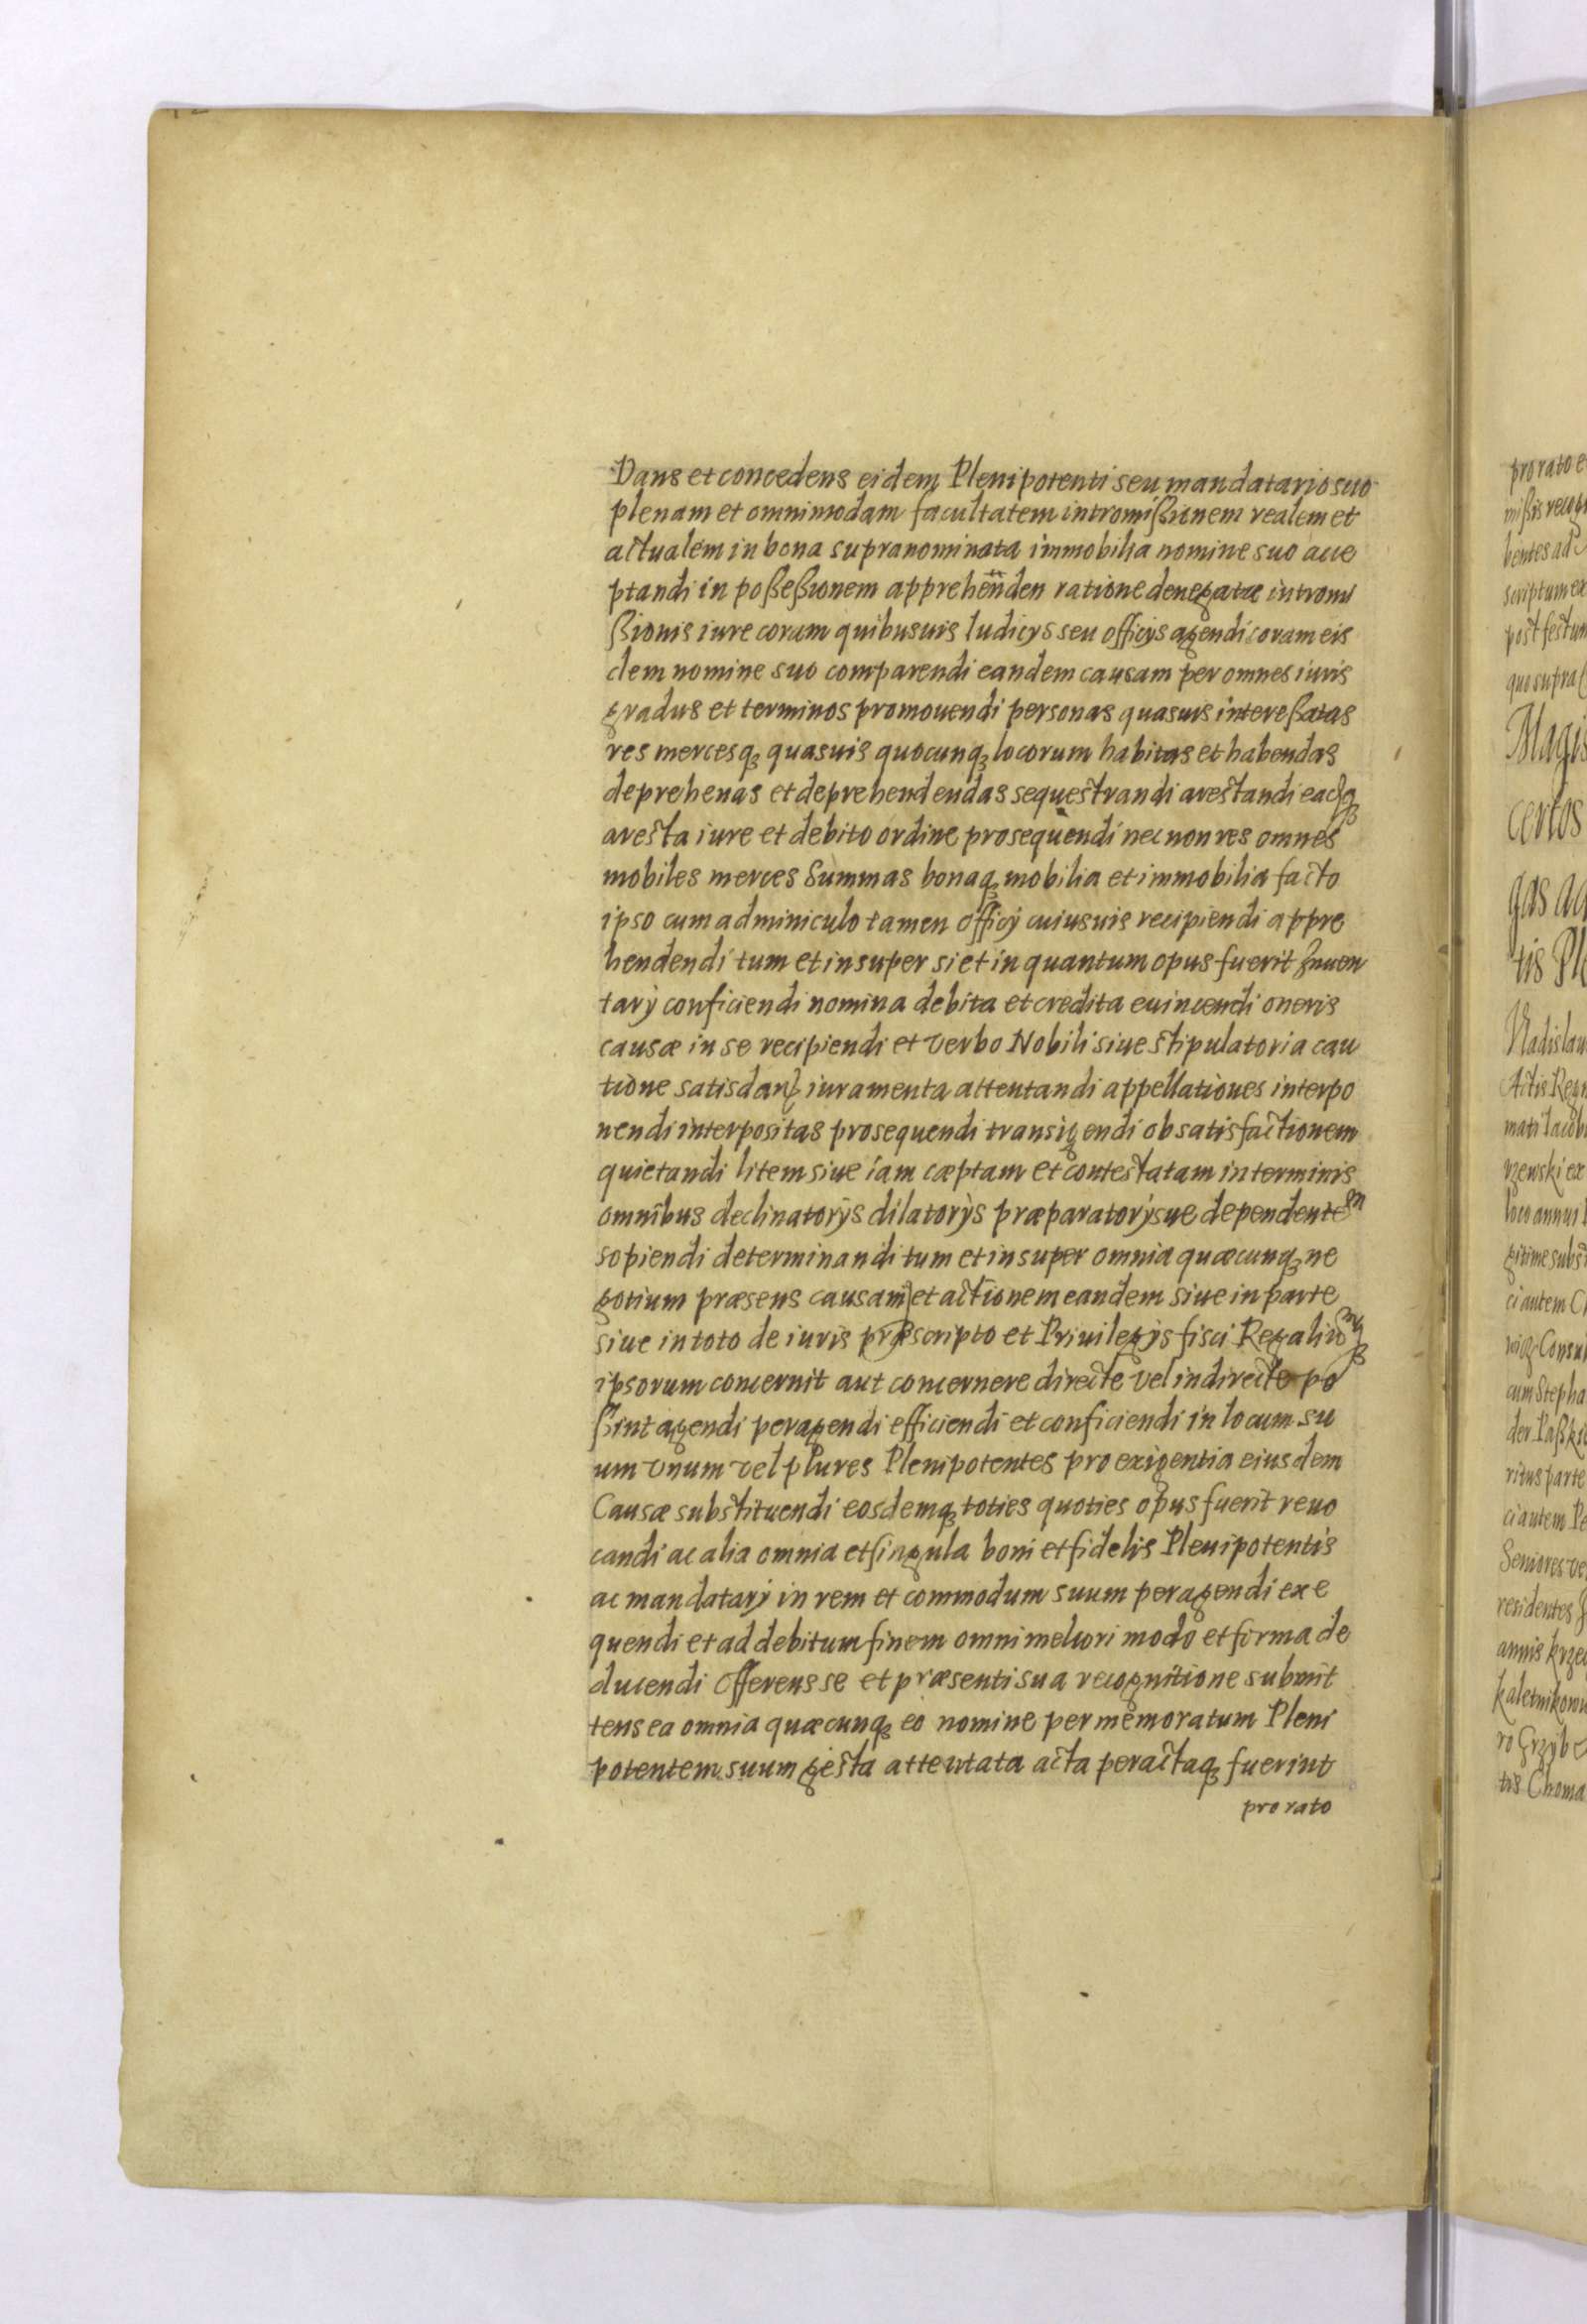 Dans et concedens eidem Plenipotenti seu mandatario suo
plenam et omnimodam facultatem intromißionem realem et
actualem in bona supranominata immobilia nomine suo acce
ptandi in poßeßionem apprehenden ratione denegatæ intromi
ßionis iure coram quibusuis Iudicys seu officys agendi coram eis
dem nomine suo comparendi eandem causam per omnes iuris
gradus et terminos promouendi personas quasuis intereßatas
res mercesq quasuis quocunq locorum habitas et habendas
deprehenas et deprehendendas sequestrandi arestandi eadq
aresta iure et debito ordine prosequendi nec non res omnes
mobiles merces Summas bonaq mobilia et immobilia facto
ipso cum adminiculo tamen officÿ cuiusuis recipiendi appre
hendendi tum et insuper si et in quantum opus fuerit Inuen
tarÿ conficiendi nomina debita et credita euincendi oneris
causæ in se recipiendi et verbo Nobili siue stipulatoria cau
tione satisdan iuramenta attentandi appellationes interpo
nendi interpositas prosequendi transigendi ob satisfactionem
quietandi litem siue iam cæptam et contestatam in terminis
omnibus declinatorÿs dilatorÿs præparatorÿsue dependentem
sopiendi determinandi tum et insuper omnia quæcunq ne
gotium præsens causam et actionem eandem siue in parte
siue in toto de iuris præscripto et Priuilegÿs fisci Regalium
ipsorum concernit aut concernere directe vel indirecte po
ßint agendi peragendi efficiendi et conficiendi in locum su
um vnum vel plures Plenipotentes pro exigentia eiusdem
Causæ substituendi eosdemq toties quoties opus fuerit reuo
candi ac alia omnia et singula boni et fidelis Plenipotentis
ac mandatarÿ in rem et commodum suum peragendi exe
quendi et ad debitum finem omni meliori modo et forma de
ducendi offerens se et præsenti sua recognitione submit
tens ea omnia quæcunq eo nomine per memoratum Pleni
potentem suum gesta attentata acta peractaq fuerint
pro rato
pro rato e
mißis recog
bentes ad
scriptum ex
post festum
quo supra
Magis
certos
gas aq
tis Pl
Vladislau
Actis Regn
mati Iacobi
rzewski ex
loco annui
gitime subst
ci autem C
niq Consu
cum Stepha
der Paßk
ritus parte
ci autem Pe
Seniores ve
residentes
annis Krze
kaletnikoru
ro Grzyb
tis Choma